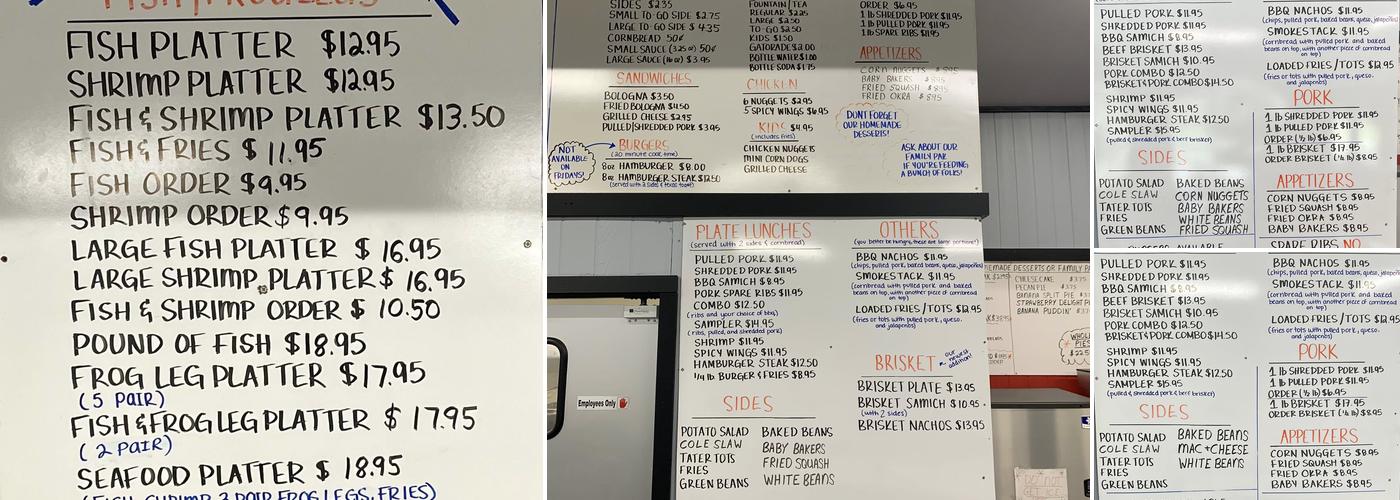 FISH PLATTER $12.95
SHRIMP PLATTER $12.95
FISH & SHRIMP PLATTER $13.50
FISH & FRIES $11.95
FISH ORDER $9.95
SHRIMP ORDER $9.95
LARGE FISH PLATTER $16.95
LARGE SHRIMP PLATTER $16.95
FISH & SHRIMP ORDER $10.50
POUND OF FISH $18.95
FROG LEG PLATTER $17.95
(5 PAIR)
FISH & FROG LEG PLATTER $17.95
(2 PAIR)
SEAFOOD PLATTER $18.95
SIDES $2.35
SMALL TO-GO SIDE $2.75
LARGE TO-GO SIDE $4.35
CORNBREAD 50¢
SMALL SAUCE (3.25 oz) 50¢
LARGE SAUCE (16 oz) $3.95
SANDWICHES
BOLOGNA $3.50
FRIED BOLOGNA $4.50
GRILLED CHEESE $2.95
PULLED/SHREDDED PORK $3.95
BURGERS
(20 minute cook time)
NOT
AVAILABLE
ON
FRIDAYS!
8oz HAMBURGER $8.00
8oz HAMBURGER STEAK $12.50
(served with 2 sides & texas toast)
FOUNTAIN/TEA
REGULAR $2.25
LARGE $2.50
TO-GO $2.50
KIDS $1.50
GATORADE $2.00
BOTTLE WATER $1.00
BOTTLE SODA $1.75
CHICKEN
6 NUGGETS $2.95
5 SPICY WINGS $6.95
KIDS $4.95
(includes fries)
CHICKEN NUGGETS
MINI CORN DOGS
GRILLED CHEESE
ORDER $6.95
1 lb SHREDDED PORK $11.95
1 lb PULLED PORK $11.95
1 lb SPARE RIBS $11.95
APPETIZERS
CORN NUGGETS $8.95
BABY BAKERS $8.95
FRIED SQUASH $8.95
FRIED OKRA $8.95
DON'T FORGET
OUR HOMEMADE
DESSERTS!
ASK ABOUT OUR
FAMILY PAK
IF YOU'RE FEEDING
A BUNCH OF FOLKS!
PLATE LUNCHES
(served with 2 sides & cornbread)
PULLED PORK $11.95
SHREDDED PORK $11.95
BBQ SAMICH $8.95
PORK SPARE RIBS $11.95
COMBO $12.50
(ribs and your choice of bbq)
SAMPLER $14.95
(ribs, pulled, and shredded pork)
SHRIMP $11.95
SPICY WINGS $11.95
HAMBURGER STEAK $12.50
1/4 lb BURGER & FRIES $8.95
SIDES
POTATO SALAD
COLE SLAW
TATER TOTS
FRIES
GREEN BEANS
BAKED BEANS
BABY BAKERS
FRIED SQUASH
WHITE BEANS
OTHERS
(you better be hungry, these are large portions!)
BBQ NACHOS $11.95
(chips, pulled pork, baked beans, queso, jalapeños)
SMOKESTACK $11.95
(cornbread with pulled pork and baked
beans on top, with another piece of cornbread
on top)
LOADED FRIES/TOTS $12.95
(fries or tots with pulled pork, queso,
and jalapeños)
BRISKET
our newest addition!
BRISKET PLATE $13.95
BRISKET SAMICH $10.95
(with 2 sides)
BRISKET NACHOS $13.95
Employees Only
EMADE DESSERTS OR FAMILY
CHEESECAKE $3.75
PECAN PIE
BANANA SPLIT PIE
STRAWBERRY DELIGHT
BANANA PUDDIN'
WHOLE
PIES
PULLED PORK $11.95
SHREDDED PORK $11.95
BBQ SAMICH $8.95
BEEF BRISKET $13.95
BRISKET SAMICH $10.95
PORK COMBO $12.50
BRISKET & PORK COMBO $14.50
SHRIMP $11.95
SPICY WINGS $11.95
HAMBURGER STEAK $12.50
SAMPLER $15.95
(pulled & shredded pork & beef brisket)
SIDES
POTATO SALAD
COLE SLAW
TATER TOTS
FRIES
GREEN BEANS
BAKED BEANS
CORN NUGGETS
BABY BAKERS
WHITE BEANS
FRIED SQUASH
BBQ NACHOS $11.95
(chips, pulled pork, baked beans, queso, jalapeños)
SMOKESTACK $11.95
(cornbread with pulled pork and baked
beans on top, with another piece of cornbread
on top)
LOADED FRIES/TOTS $12.95
(fries or tots with pulled pork, queso,
and jalapeños)
PORK
1 lb SHREDDED PORK $11.95
1 lb PULLED PORK $11.95
ORDER (1/2 lb) $6.95
1 lb BRISKET $17.95
ORDER BRISKET (1/2 lb) $8.95
APPETIZERS
CORN NUGGETS $8.95
FRIED SQUASH $8.95
FRIED OKRA $8.95
BABY BAKERS $8.95
SPARE RIBS NO
PULLED PORK $11.95
SHREDDED PORK $11.95
BBQ SAMICH $8.95
BEEF BRISKET $13.95
BRISKET SAMICH $10.95
PORK COMBO $12.50
BRISKET & PORK COMBO $14.50
SHRIMP $11.95
SPICY WINGS $11.95
HAMBURGER STEAK $12.50
SAMPLER $15.95
(pulled & shredded pork & beef brisket)
SIDES
POTATO SALAD
COLE SLAW
TATER TOTS
FRIES
GREEN BEANS
BAKED BEANS
MAC + CHEESE
WHITE BEANS
BBQ NACHOS $11.95
(chips, pulled pork, baked beans, queso, jalapeños)
SMOKESTACK $11.95
(cornbread with pulled pork and baked
beans on top, with another piece of cornbread
on top)
LOADED FRIES/TOTS $12.95
(fries or tots with pulled pork, queso,
and jalapeños)
PORK
1 lb SHREDDED PORK $11.95
1 lb PULLED PORK $11.95
ORDER (1/2 lb) $6.95
1 lb BRISKET $17.95
ORDER BRISKET (1/2 lb) $8.95
APPETIZERS
CORN NUGGETS $8.95
FRIED SQUASH $8.95
FRIED OKRA $8.95
BABY BAKERS $8.95